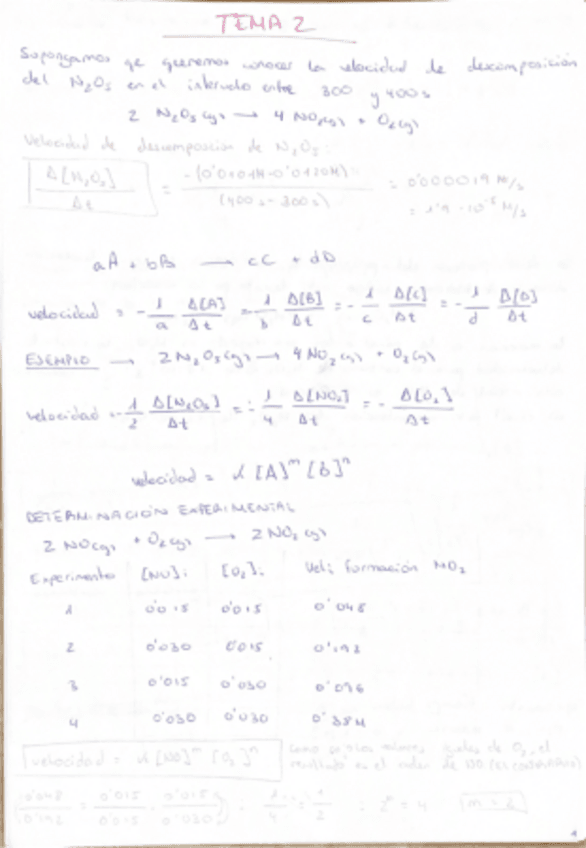 TEMA 2
Supongamos qe queremos conocer la velocidad de descomposición
del N₂O₅ en el intervalo entre 300 y 400 s
2 N₂O₅(g) → 4 NO₂(g) + O₂(g)
Velocidad de descomposición de N₂O₅:
Δ[N₂O₅] / Δt = -(0'0101M-0'0120M) / (400s-300s) = 0'000019 M/s
= 1'9 · 10⁻⁵ M/s
aA + bB → cC + dD
velocidad = - 1/a Δ[A]/Δt = - 1/b Δ[B]/Δt = - 1/c Δ[C]/Δt = - 1/d Δ[D]/Δt
EJEMPLO → 2 N₂O₅(g) → 4 NO₂(g) + O₂(g)
velocidad = - 1/2 Δ[N₂O₅]/Δt = - 1/4 Δ[NO₂]/Δt = - Δ[O₂]/Δt
velocidad = k [A]ᵐ [B]ⁿ
DETERMINACIÓN EXPERIMENTAL
2 NO(g) + O₂(g) → 2 NO₂(g)
Experimento [NO]i [O₂]i Vel i formación NO₂
1 0'015 0'015 0'048
2 0'030 0'015 0'192
3 0'015 0'030 0'096
4 0'030 0'030 0'384
velocidad = k [NO]ᵐ [O₂]ⁿ
de O₂, el
en el orden de NO (es constante)
0'048/0'192 = 0'015 0'015 / 0'015 0'030 1/4 = 1/2 : 2ᵐ = 4 m = 2